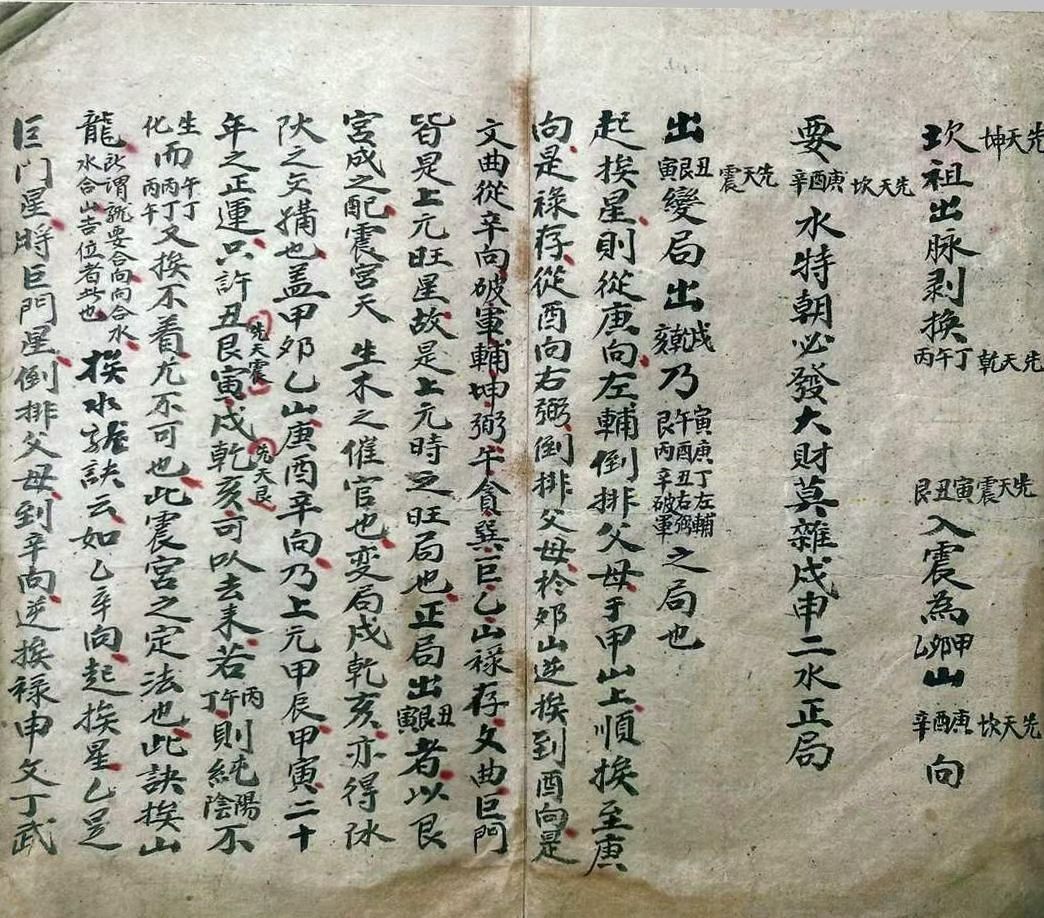 坎祖先天坤出脉剥換丙午丁先天乾艮丑寅先天震入震為甲卯乙山辛酉庚先天坎向
要辛酉庚先天坎水特朝必發大財莫雜戌申二水正局
出丑艮寅先天震變局出戌乾亥乃寅庚丁左輔午酉丑右弼艮丙辛破軍之局也
起挨星則從庚向左輔倒排父母于甲山上順挨至庚
向是祿存從酉向右弼倒排父母於卯山逆挨到酉向是
文曲從辛向破軍輔坤弼午貪巽巨乙山祿存文曲巨門
皆是上元旺星故是上元時之旺局也正局出丑艮寅者以艮
宮成之配震宮天生木之催官也变局戌乾亥亦得氷
之交媾也盖甲卯乙山庚酉辛向乃上元甲辰甲寅二十
年之正運只許丑艮寅先天震戌乾亥先天艮可以去来若丙午丁則純陽陰不
生化而午丁丙丁丙午又挨不着尤不可也此震宮之定法也此訣挨山
龍此謂龍要合向向合水水合山吉位者此也挨水龍訣云如乙辛向起挨星乙是
巨門星將巨門星倒排父母到辛向逆挨祿申文丁武